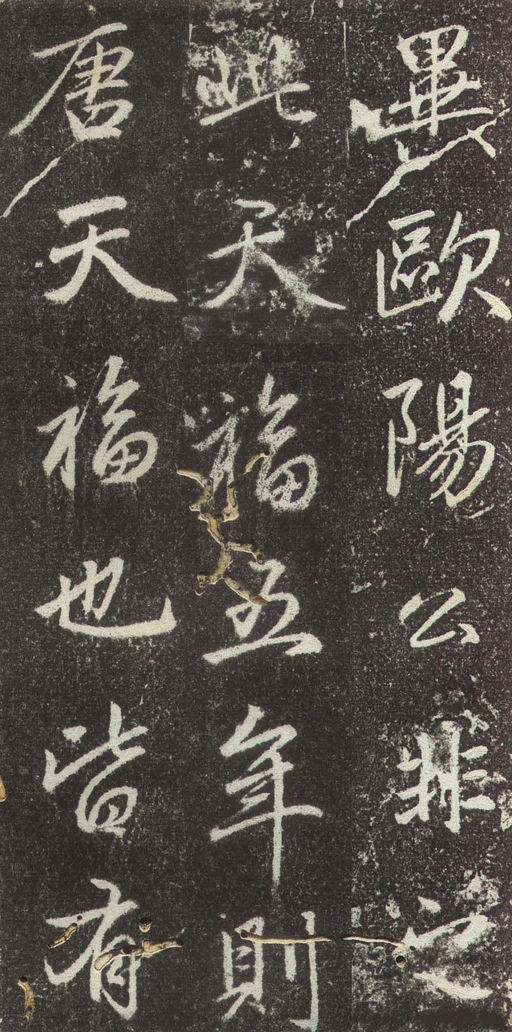 畢歐陽公非之
天福五年則
唐天福也皆有